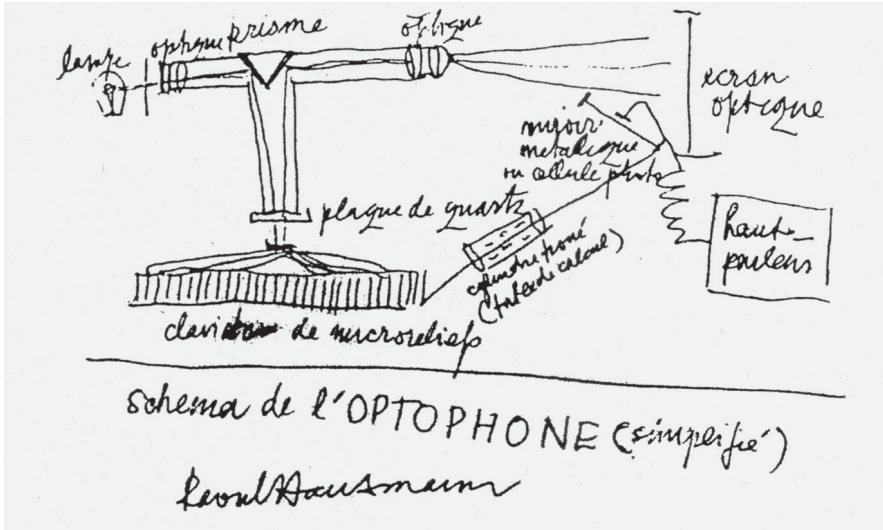 lampe
optique
prisme
optique
ecran
optique
miroir
metalique
ou cellule photo
plaque de quartz
haut-
parleur
cylindre troué
(tables de calcul)
clavier de microreliefs
schema de l'OPTOPHONE (simplifié)
Raoul Hausmann